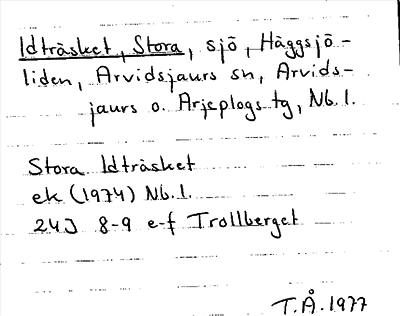 Idträsket, Stora, sjö, Häggsjö-
liden, Arvidsjaurs sn, Arvids-
jaurs o. Arjeplogs tg, Nb. l.
Stora Idträsket
ek (1974) Nb. l.
24J 8-9 e-f Trollberget
T.Å. 1977